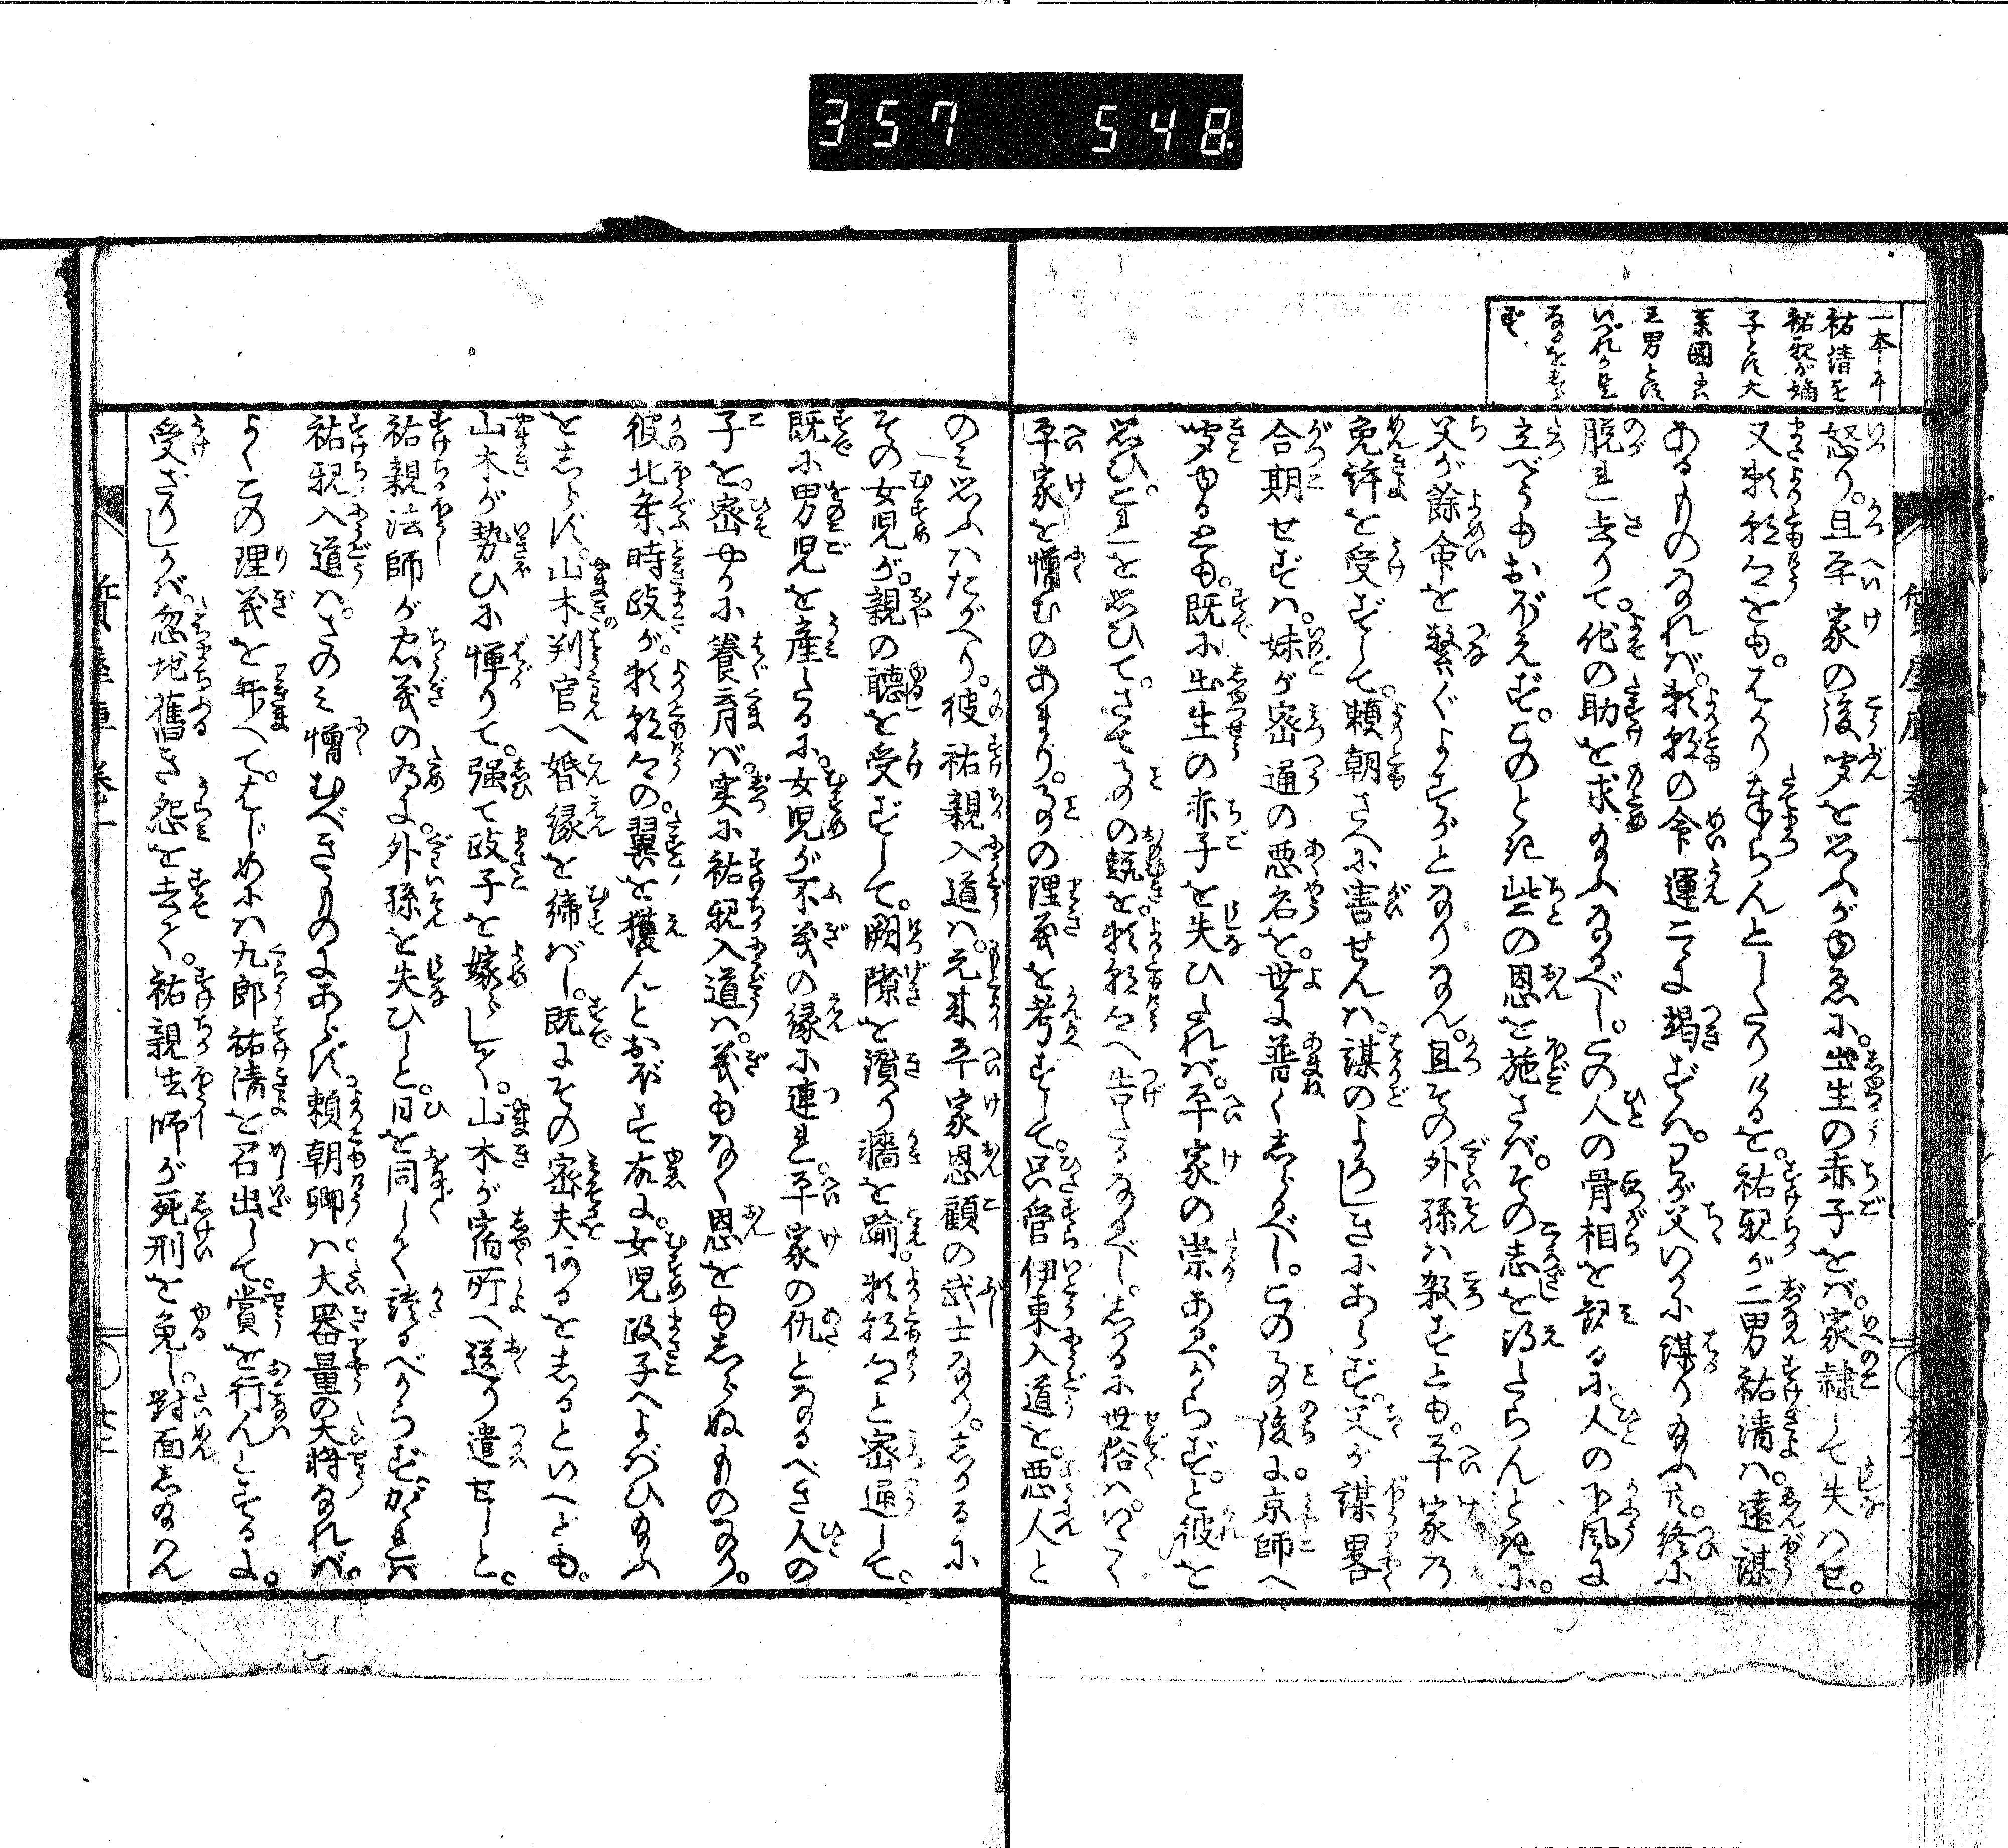 357 548
一本ニ
祐清を
祐親が嫡
子とす大
系圖ニハ
三男とす
いづれか是
なるをしら
ず
怒り。且平家の後聞を思ふがゆゑに。出生の赤子をば。家隷して失はせ。
又頼朝卿をも。はかり奉らんとしたりけるを。祐親が二男祐清は。遠謀
あるものなれば。頼朝の命運こゝに竭ずは。わが父いかに謀り給ふ共。終に
脱れ去りて。他の助を求め給ふなるべし。この人の骨相を観るに。人の下風に
立べうもおぼえず。このとき些の恩を施さば。その志を得たらんときに。
父が餘命を繋ぐよすがとなりなん。且その外孫は殺すとも。平家の
免許を受ずして。頼朝さへに害せんは。謀のよろしきにあらず。父が謀畧
合期せずは。妹が密通の悪名を。世に普くしらるべし。この事の後に。京師へ
聞ゆるとも。既に出生の赤子を失ひたれば。平家の祟あるべからず。と彼を
思ひ。これを思ひて。さてその事の趣を。頼朝卿へ告たるなるべし。しかるに世俗は。すべて
平家を憎むのあまり。事の理義を考ずして。只管伊東入道を。悪人と
のミ思ふはたがへり。彼祐親入道は。元来平家恩顧の武士なり。しかるに
その女児が。親の聴を受ずして。隙を鑽り牆を踰。頼朝卿と密通して。
既に男児を産たるに。女児が不義の縁に連れ。平家の仇となるべき人の
子を。密やかに養育ば。実に祐親入道は。義もなく恩をもしらぬものなり。
彼北条時政が。頼朝卿の。翼を獲んとおぼす故に。女児政子へよばひ給ふ
としらず。山木判官へ婚縁を締びし。既にその密夫あるをしるといへども。
山木が勢ひに憚りて。強て政子を嫁らして。山木が宿所へ送り遣せしと。
祐親法師が忠義の為に。外孫を失ひしと。日を同しく語るべからず。かゝれば
祐親入道は。さのミ憎むべきものにあらず。頼朝卿は大器量の大将なれば。
よくこの理義を弁へて。はじめには九郎祐清を召出して。賞を行んとするに。
受ざりしかば。忽地舊き怨を去て。祐親法師が死刑を免し。對面し給はん